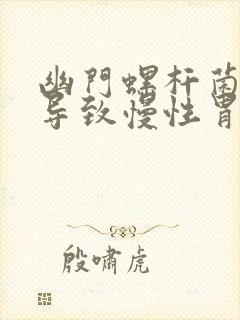 幽門螺杆菌
导致慢性胃
殷嘯虎